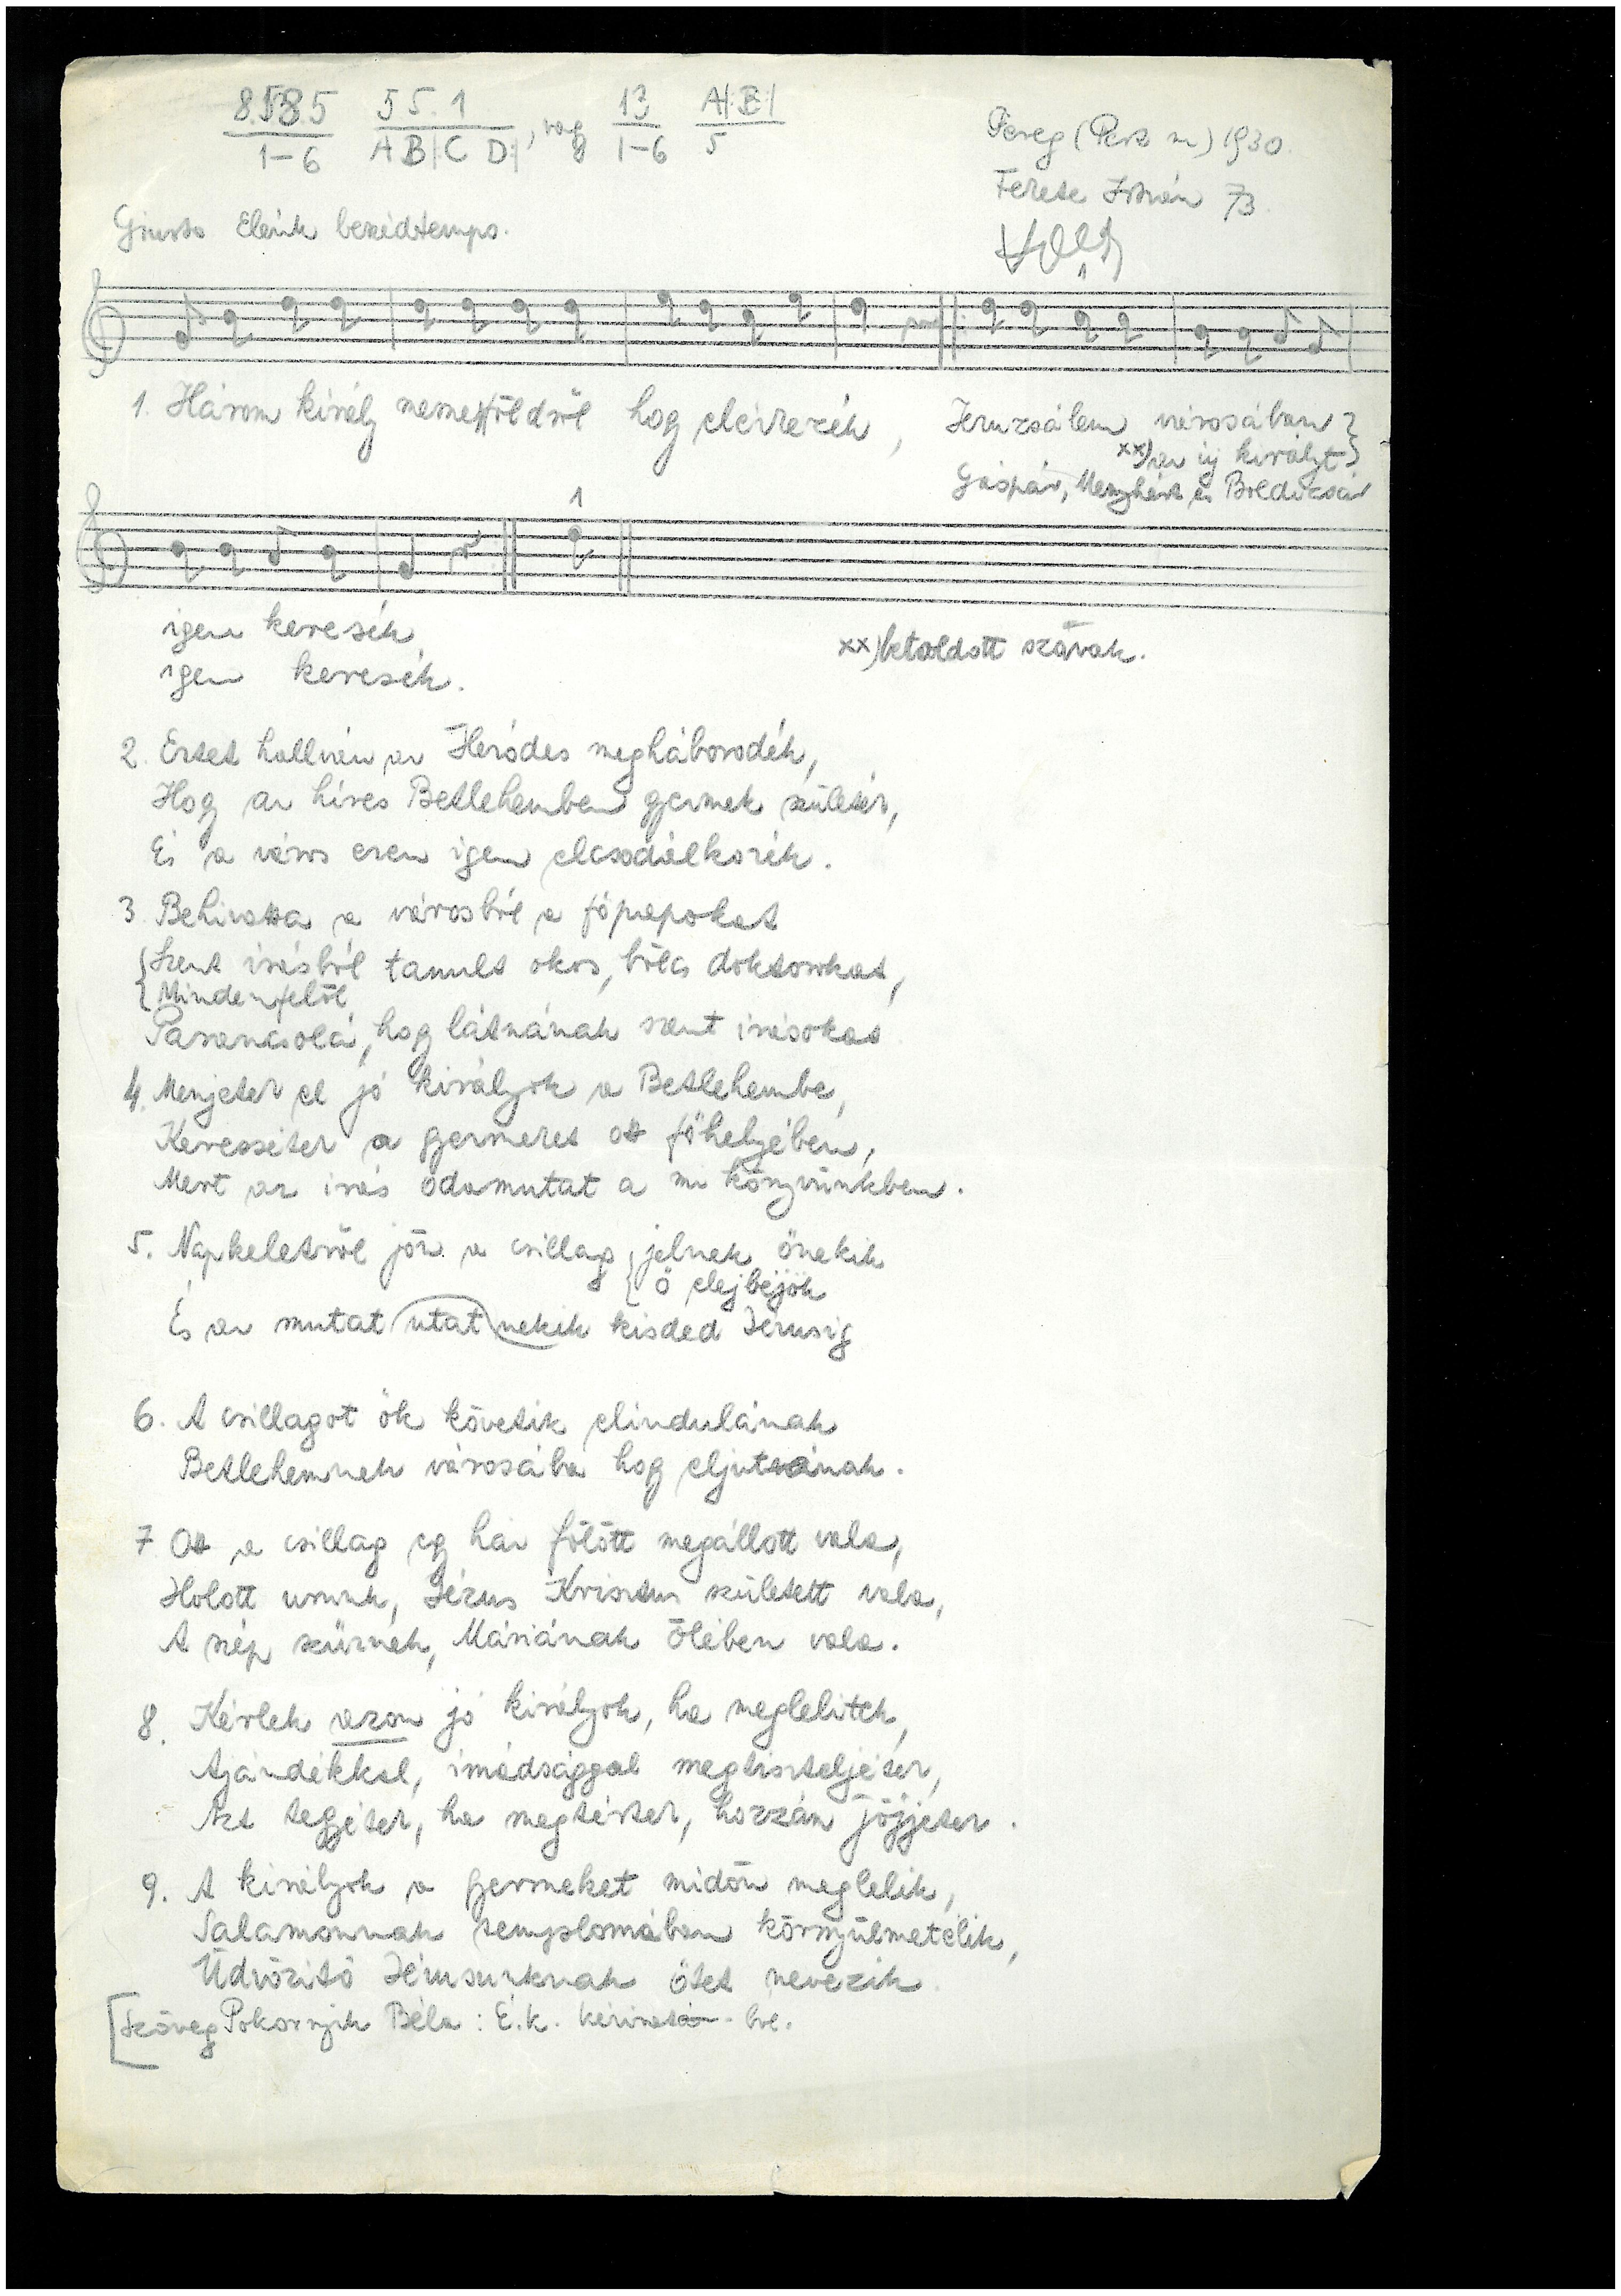 8.5.8.5 5 5. 1 , vagy 13 A|:B:|
1-6 A B|C D:| 1-6 5
Pereg (Pest m) 1930.
Fekete István 73.
Giusto Elénk beszédtempo.
1. Három király messzeföldről hogy elérkezék, Jeruzsálem városában
xx) az új királyt
Gáspár, Menyhárt és Boldizsár
1
igen keresék
igen keresék.
xx) betoldott szavak.
2. Eztet hallván az Heródes megháborodék,
Hogy az híres Betlehemben gyermek születék,
És a város ezen igen elcsodálkozék.
3. Behivatta a városból a főpapokat
Szent írásból tanult okos, bölcs doktorokat,
Mindenfelől
Parancsolá, hogy látnának szent írásokat
4. Menjetek el jó királyok a Betlehembe,
Keressétek a gyermeket ott főhelyében,
Mert az írás odamutat a mi könyvünkben.
5. Napkeletről jön a csillag jelnek őnekik
ő elejbéjök
És az mutat utat nekik kisded Jézusig
6. A csillagot ők követik elindulának
Betlehemnek városába hogy eljutának.
7 Ott a csillag egy ház fölött megállott vala,
Holott urunk, Jézus Krisztus született vala,
A szép szűznek, Máriának ölében vala.
8. Kérlek azon jó királyok, ha meglelitek,
Ajándékkal, imádsággal megtiszteljétek,
Azt tegyétek, ha megtértek, hozzám jőjjetek.
9. A királyok a gyermeket midőn meglelik,
Salamonnak templomában környülmetélik,
Üdvözítő Jézusunknak őtet nevezik.
[Szöveg Pokornyik Béla: É.k.